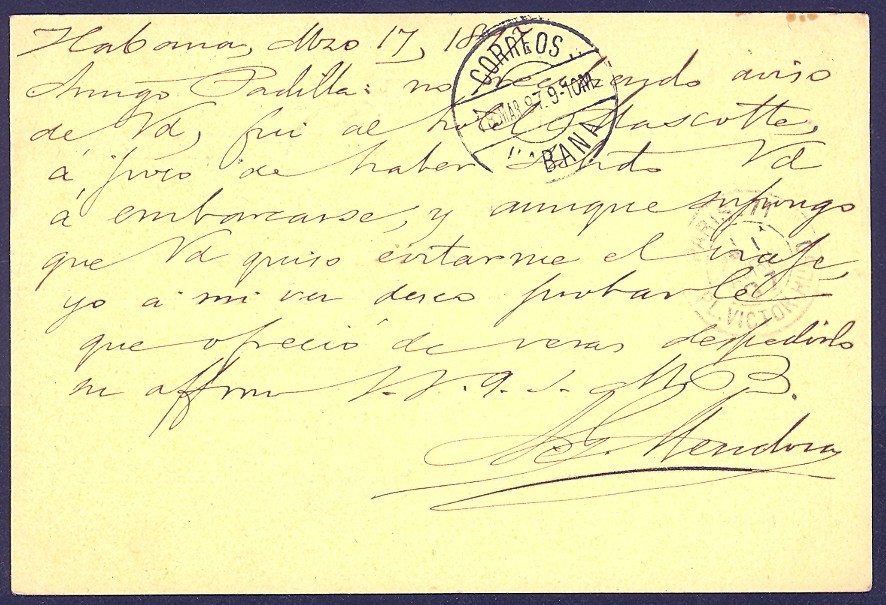 Habana, Mzo 17, 18
Amigo Padilla: no recibiendo aviso
de Vd, fui al hotel Mascotte,
á de haber Vd
á embarcarse, y aunque supongo
que Vd quiso evitarme el viaje,
yo á mi vez deseo probarle
que ofreció de veras despedirlo
su affmo S. S. Q. S. M. B.
G. Mendoza
CORREOS
MAR 97. 9-10AM
HABANA
PARIS
PL. VICTOR HUGO